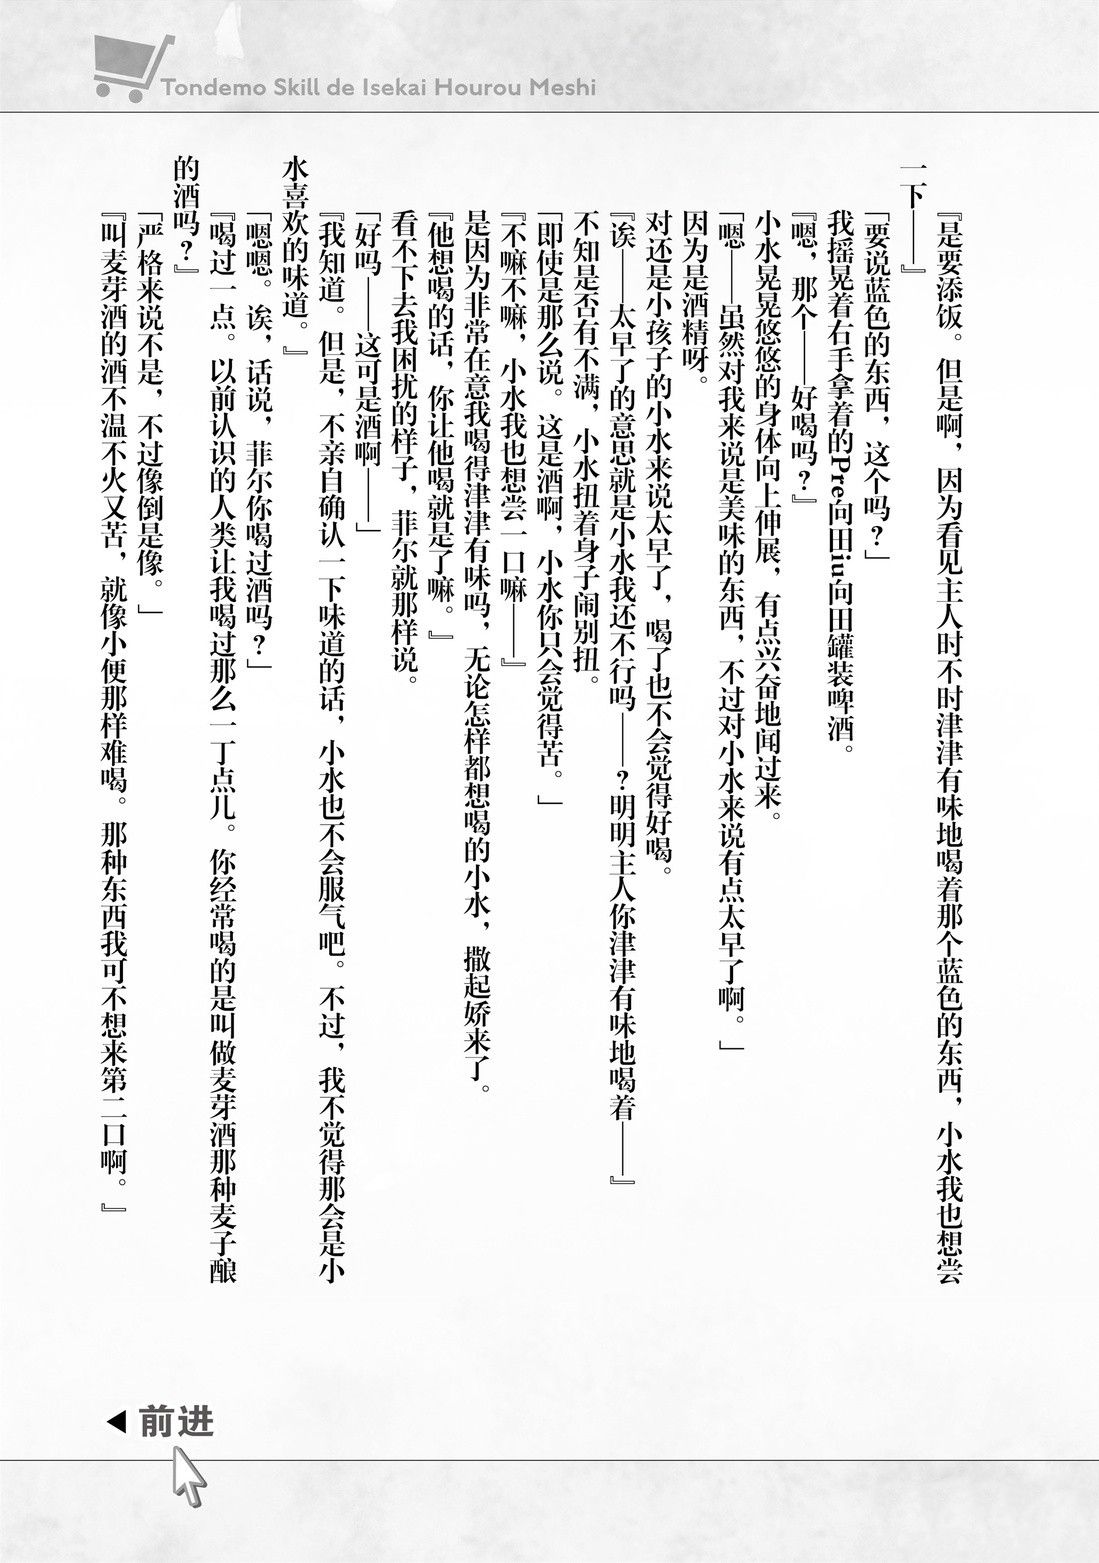 Tondemo Skill de Isekai Hourou Meshi
『是要添饭。但是啊，因为看见主人时不时津津有味地喝着那个蓝色的东西，小水我也想尝
一下——』
「要说蓝色的东西，这个吗？」
我摇晃着右手拿着的Pre向田iu向田罐装啤酒。
『嗯，那个——好喝吗？』
小水晃晃悠悠的身体向上伸展，有点兴奋地闻过来。
「嗯——虽然对我来说是美味的东西，不过对小水来说有点太早了啊。」
因为是酒精呀。
对还是小孩子的小水来说太早了，喝了也不会觉得好喝。
『诶——太早了的意思就是小水我还不行吗——？明明主人你津津有味地喝着——』
不知是否有不满，小水扭着身子闹别扭。
「即使是那么说。这是酒啊，小水你只会觉得苦。」
『不嘛不嘛，小水我也想尝一口嘛——』
是因为非常在意我喝得津津有味吗，无论怎样都想喝的小水，撒起娇来了。
『他想喝的话，你让他喝就是了嘛。』
看不下去我困扰的样子，菲尔就那样说。
「好吗——这可是酒啊——」
『我知道。但是，不亲自确认一下味道的话，小水也不会服气吧。不过，我不觉得那会是小
水喜欢的味道。』
「嗯嗯。诶，话说，菲尔你喝过酒吗？」
『喝过一点。以前认识的人类让我喝过那么一丁点儿。你经常喝的是叫做麦芽酒那种麦子酿
的酒吗？』
「严格来说不是，不过像倒是像。」
『叫麦芽酒的酒不温不火又苦，就像小便那样难喝。那种东西我可不想来第二口啊。』
前进